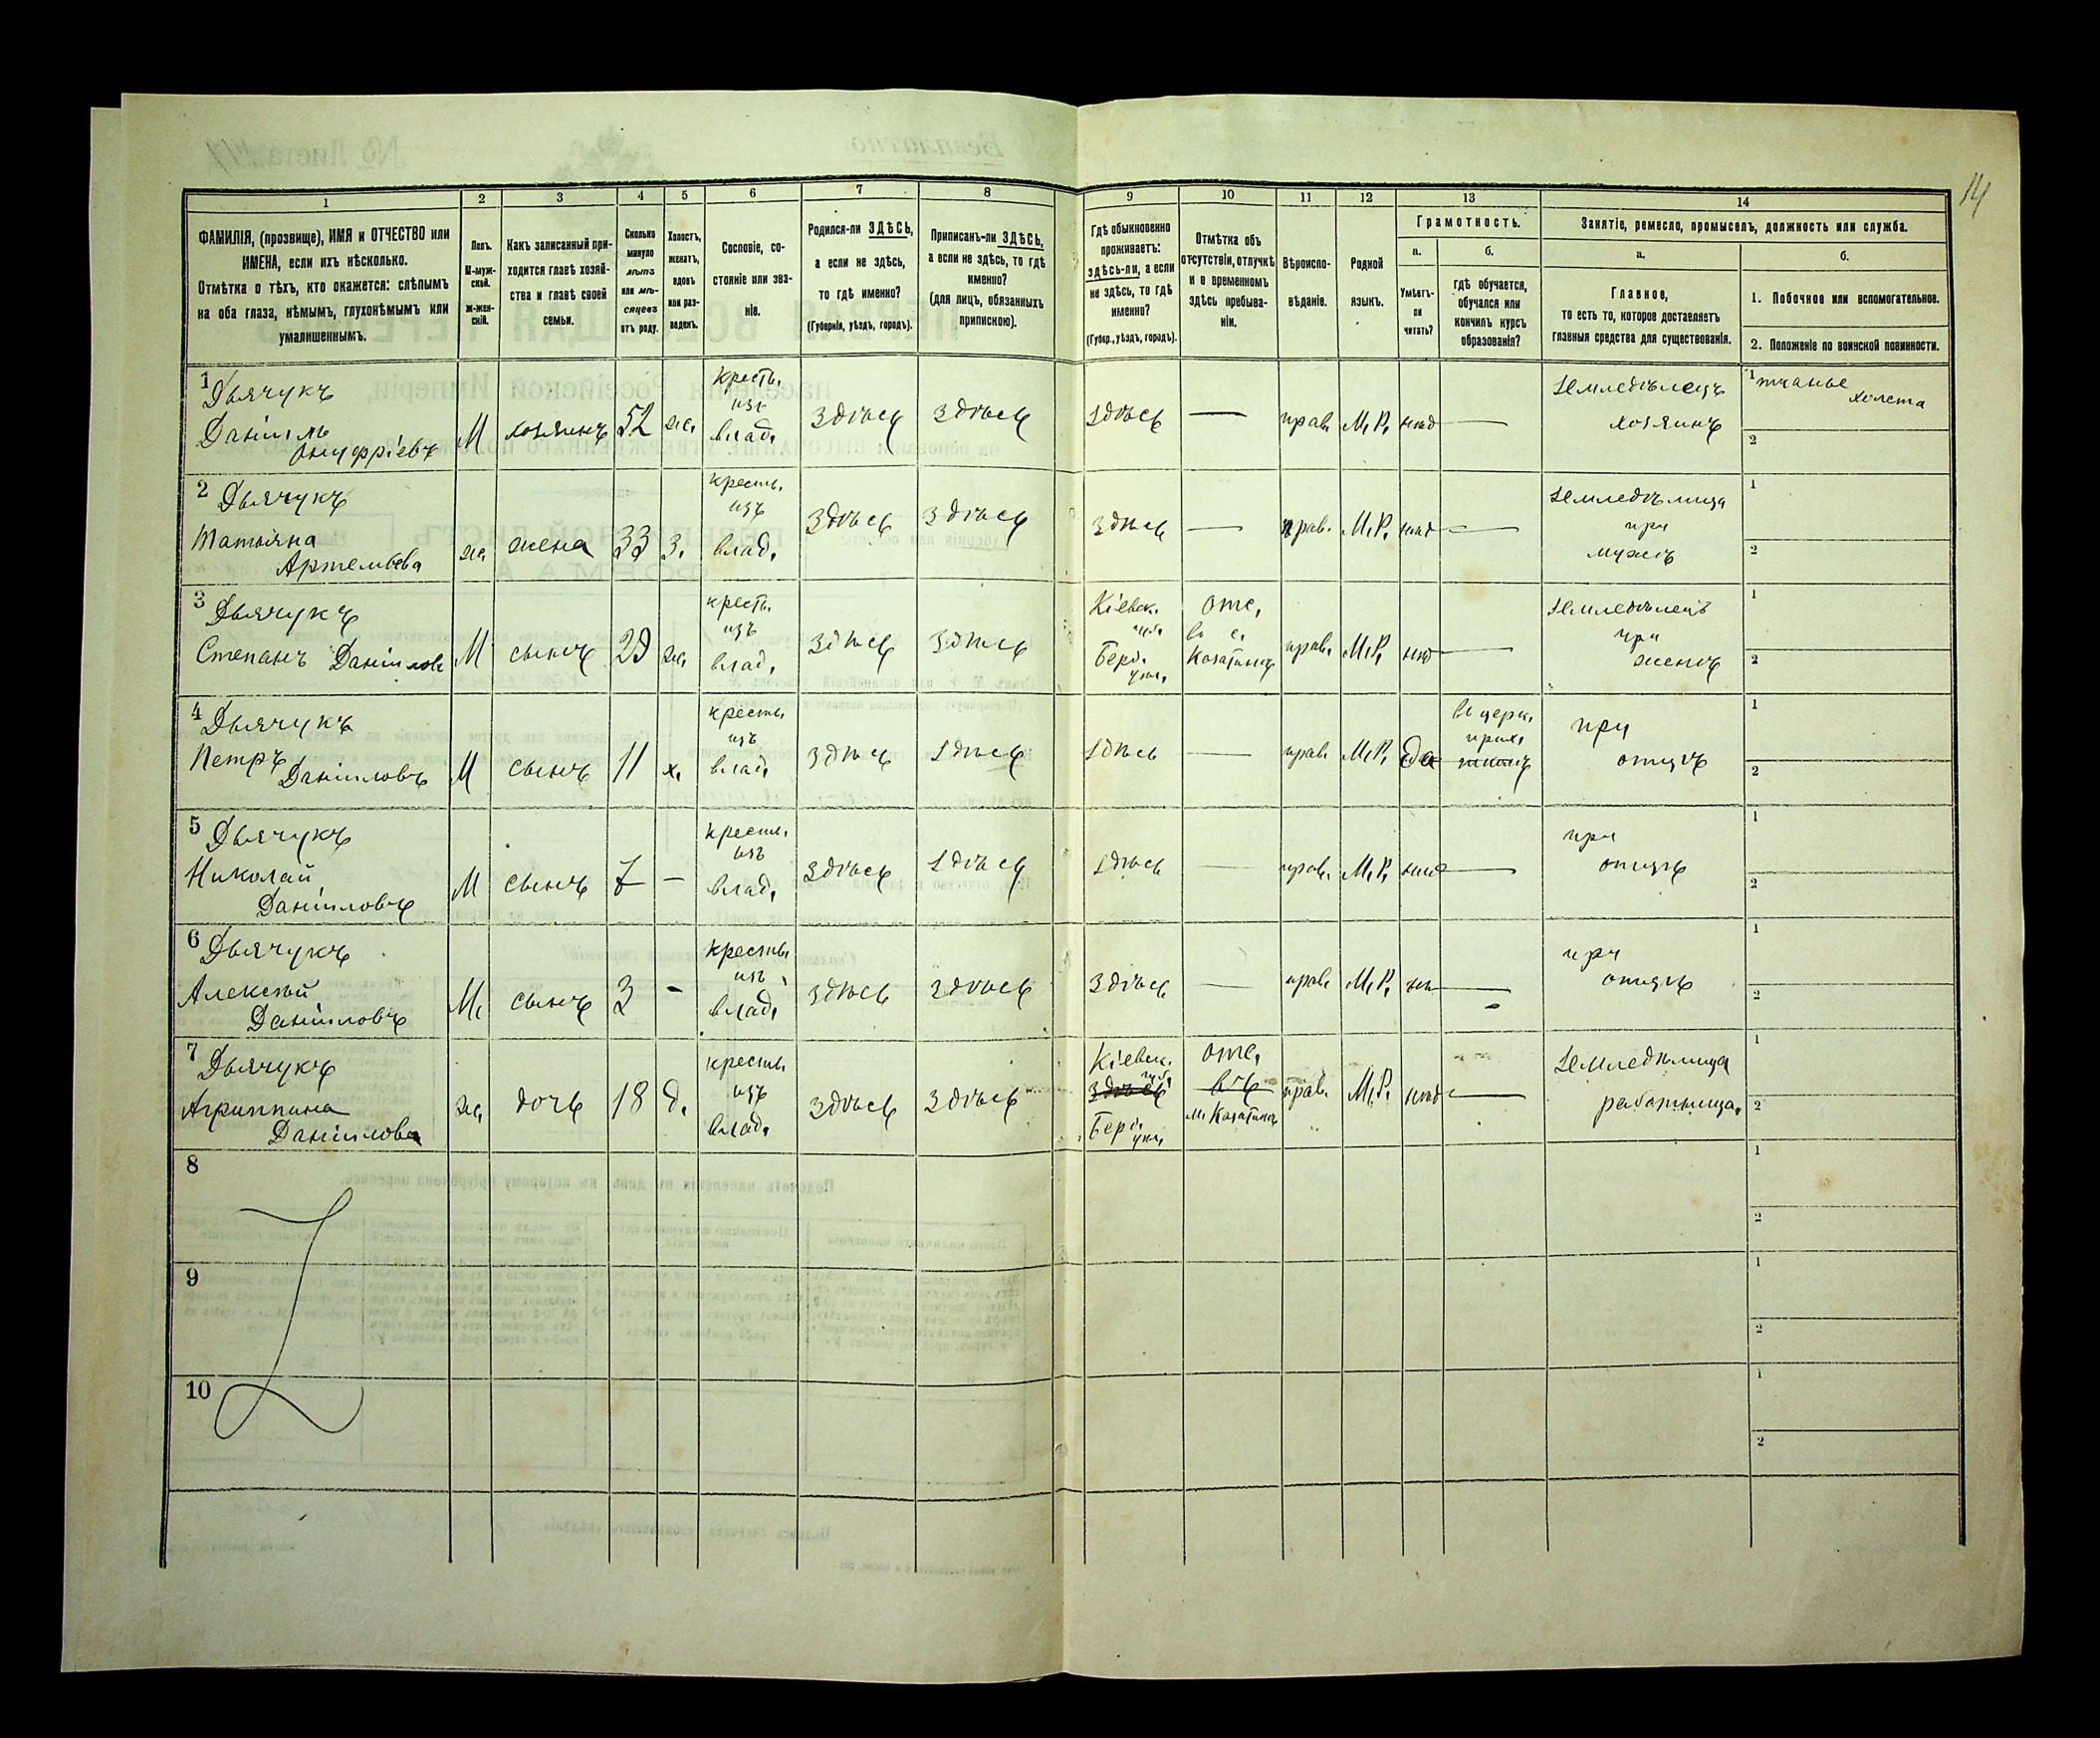 14
1
2
3
4
5
6
7
8
9
10
11
12
13
14
ФАМИЛІЯ, (прозвище), ИМЯ и ОТЧЕСТВО или
ИМЕНА, если ихъ нѣсколько.
Отмѣтка о тѣхъ, кто окажется: слѣпымъ
на оба глаза, нѣмымъ, глухонѣмымъ или
умалишеннымъ.
Полъ.
М-муж-
ской.
ж-жен-
скій.
Какъ записанный при-
ходится главѣ хозяй-
ства и главѣ своей
семьи.
Сколько
минуло
лѣтъ
или мѣ-
сяцевъ
отъ роду.
Холостъ,
женатъ,
вдовъ
или раз-
веденъ.
Сословіе, со-
стояніе или зва-
ніе.
Родился-ли ЗДѢСЬ,
а если не здѣсь,
то гдѣ именно?
(Губернія, уѣздъ, городъ).
Приписанъ-ли ЗДѢСЬ,
а если не здѣсь, то гдѣ
именно?
(для лицъ, обязанныхъ
припискою).
Гдѣ обыкновенно
проживаетъ:
здѣсь-ли, а если
не здѣсь, то гдѣ
именно?
(Губер., уѣздъ, городъ).
Отмѣтка объ
отсутствіи, отлучкѣ
и о временномъ
здѣсь пребыва-
ніи.
Вѣроиспо-
вѣданіе.
Родной
языкъ.
Грамотность.
а.
Умѣетъ-
ли
читать?
б.
гдѣ обучается,
обучался или
кончилъ курсъ
образованія?
Занятіе, ремесло, промыселъ, должность или служба.
а.
Главное,
то есть то, которое доставляетъ
главныя средства для существованія.
б.
1. Побочное или вспомогательное.
2. Положеніе по воинской повинности.
1 Дьячукъ
Даніилъ
Онуфріевъ
М
хозяинъ
52
же.
крест.
изъ
влад.
Здѣсь
Здѣсь
Здѣсь
—
прав.
М.Р.
нѣт
—
Земледѣлецъ
хозяинъ
1 тканье
холста
2
2 Дьячукъ
Татьяна
Артемьева
же.
жена
33
З.
крест.
изъ
влад.
Здѣсь
Здѣсь
Здѣсь
—
прав.
М.Р.
нѣт
—
Земледѣлица
при
мужѣ
1
2
3 Дьячукъ
Степанъ Даніилов
М
сынъ
же.
крест.
изъ
влад.
Здѣсь
Здѣсь
Кіевск.
губ.
Берд.
уѣз.
отс.
въ с.
Козатинъ
прав.
М.Р.
нѣт
—
Земледѣлецъ
при
женѣ
1
2
4 Дьячукъ
Петръ
Даніиловъ
М
сынъ
11
х.
крест.
изъ
влад.
Здѣсь
Здѣсь
Здѣсь
—
прав.
М.Р.
да
въ церк.
прих.
школѣ
при
отцѣ
1
2
5 Дьячукъ
Николай
Даніиловъ
М
сынъ
7
—
крест.
изъ
влад.
Здѣсь
Здѣсь
Здѣсь
—
прав.
М.Р.
нѣт
—
при
отцѣ
1
2
6 Дьячукъ
Алексѣй
Даніиловъ
М.
сынъ
3
-
крестья
изъ
влад.
Здѣсь
Здѣсь
Здѣсь
—
прав.
М.Р.
нѣт
—
при
отцѣ
1
2
7 Дьячукъ
Агриппина
Даніилова
же.
дочь
18
д.
крест.
изъ
влад.
Здѣсь
Здѣсь
Кіевск.
губ.
Здѣсь
Берд.
уѣз.
отс.
въ
м. Козатинъ
прав.
М.Р.
нѣт
—
Земледѣлица
работница.
1
2
8
1
2
9
1
2
10
1
2